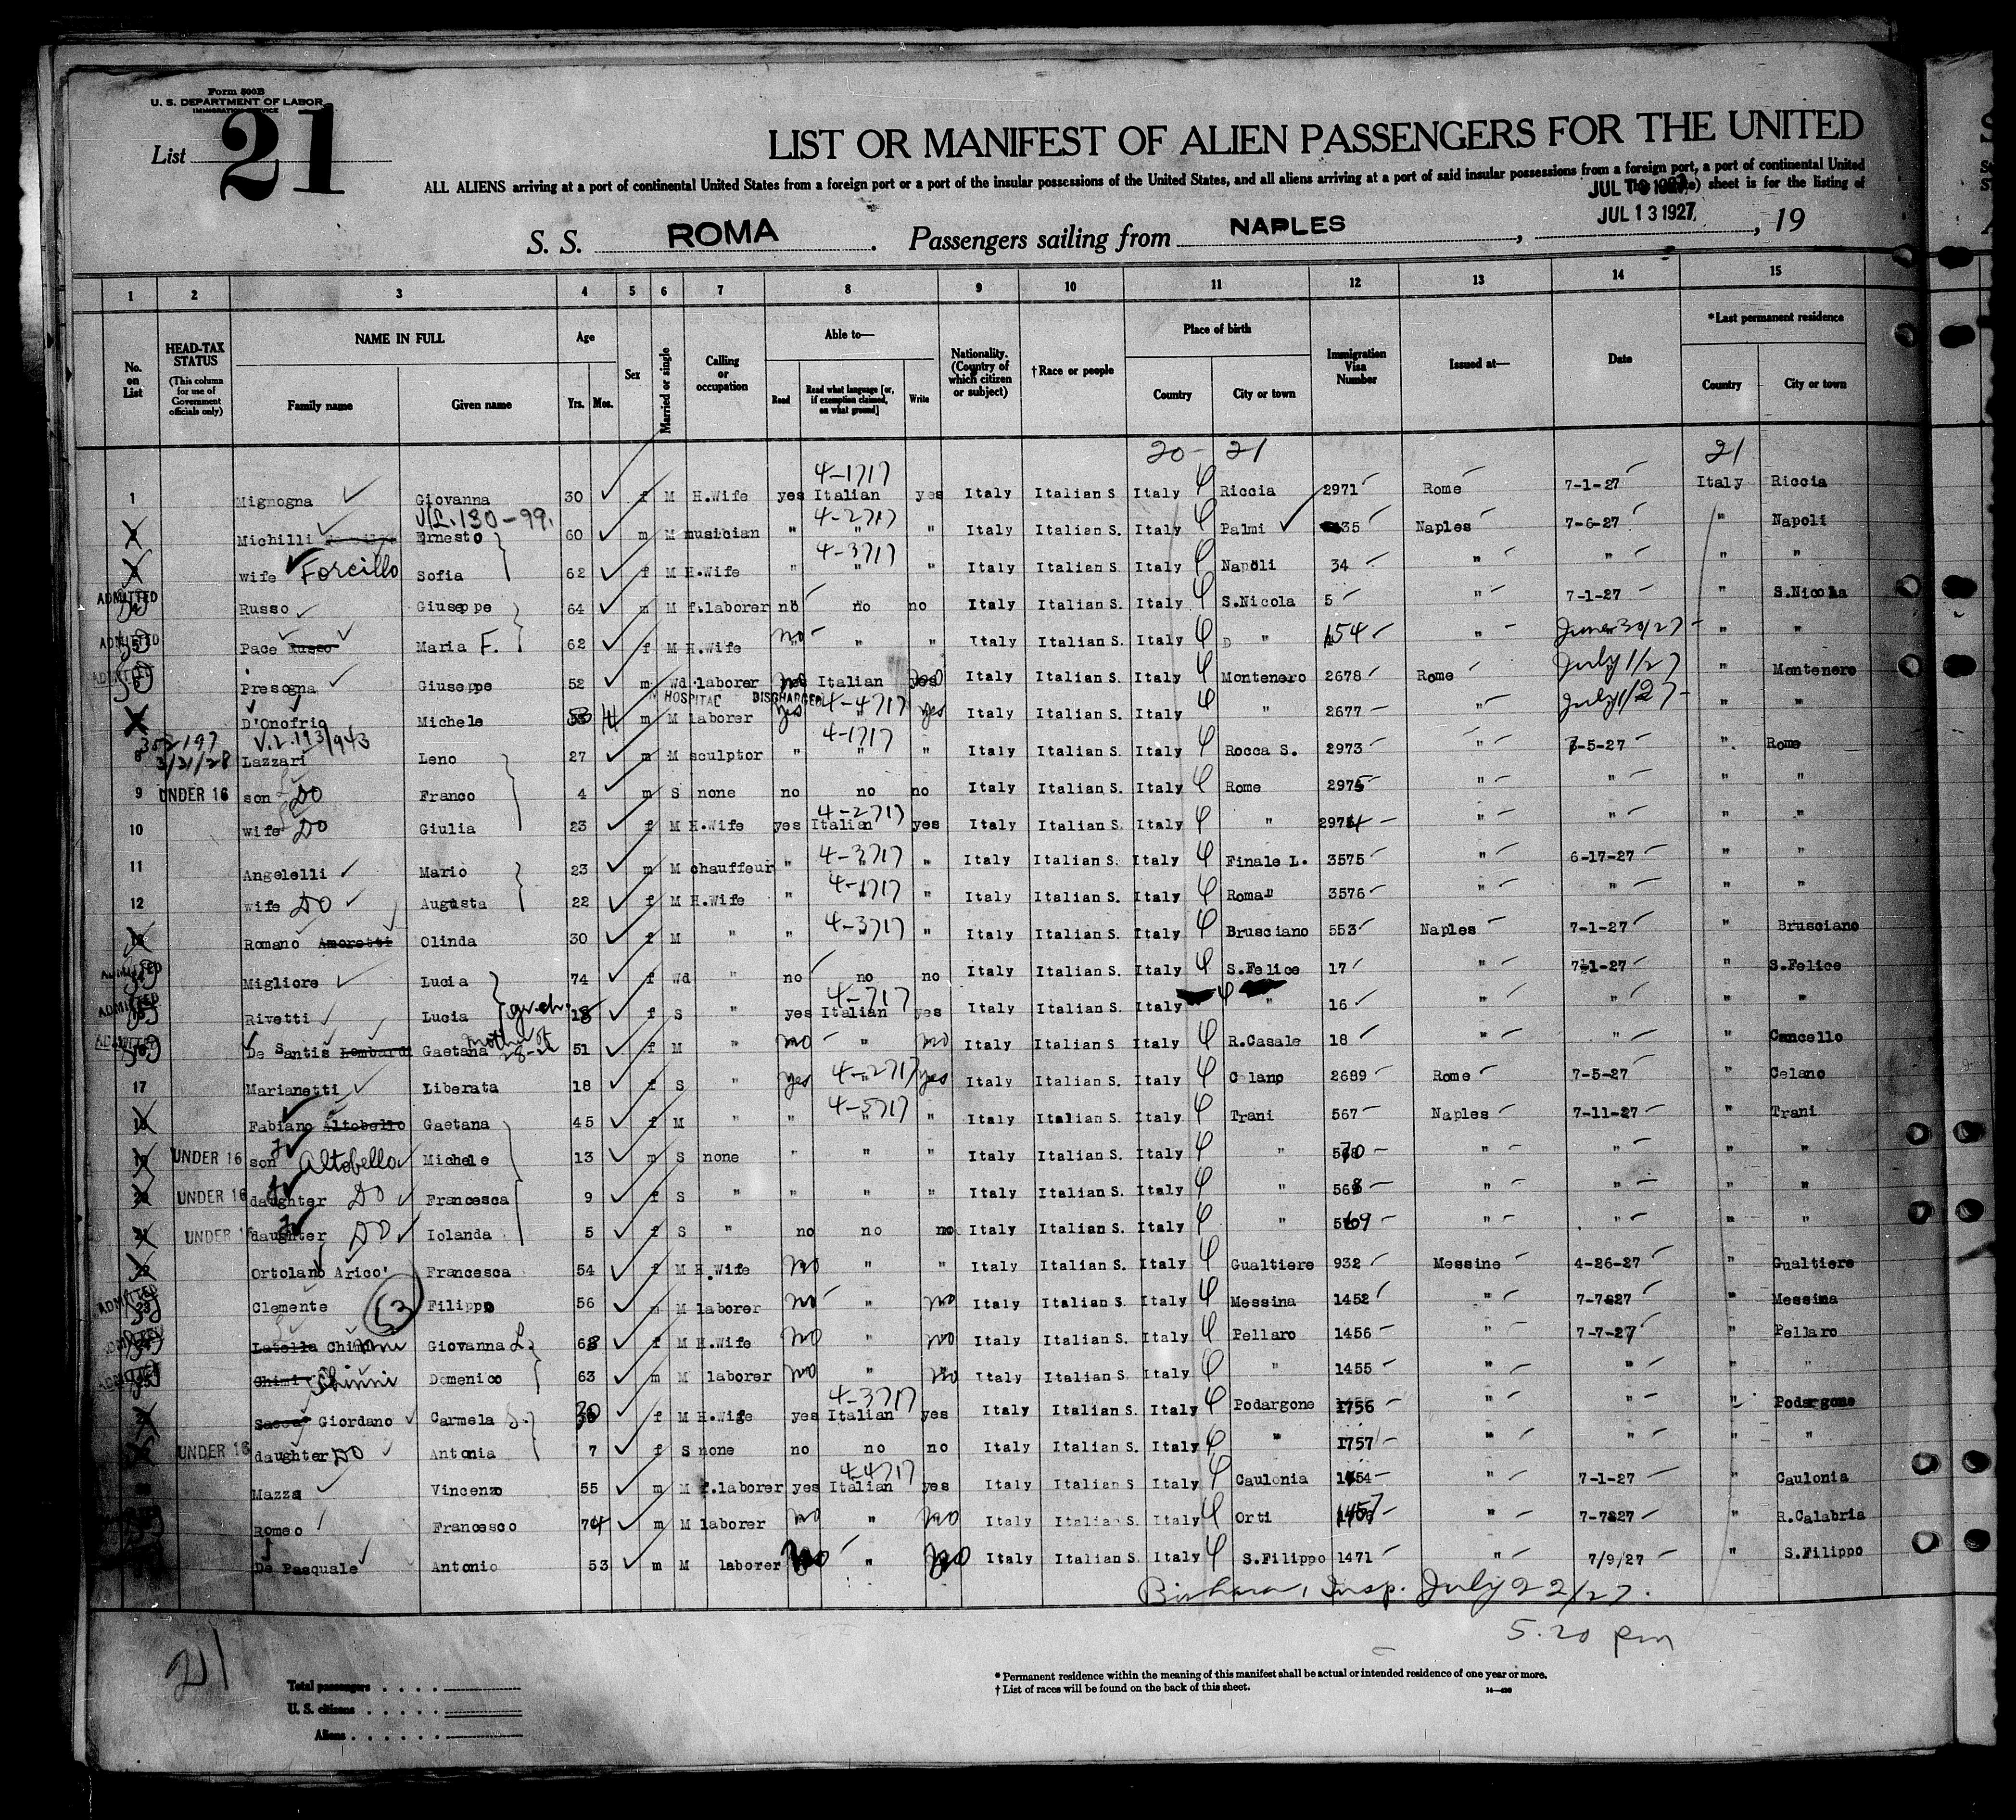 Form 500B
U. S. DEPARTMENT OF LABOR
IMMIGRATION SERVICE
List 21
LIST OR MANIFEST OF ALIEN PASSENGERS FOR THE UNITED
ALL ALIENS arriving at a port of continental United States from a foreign port or a port of the insular possessions of the United States, and all aliens arriving at a port of said insular possessions from a foreign port, a port of continental United
sheet is for the listing of
S. S. ROMA. Passengers sailing from NAPLES, JUL 13 1927, 19
1 2 3 4 5 6 7 8 9 10 11 12 13 14 15
No. on List
HEAD-TAX STATUS
(This column for use of Government officials only)
NAME IN FULL
Family name
Given name
Age
Yrs. Mos.
Sex
Married or single
Calling or occupation
Able to—
Read
Read what language [or, if exemption claimed, on what ground]
Write
Nationality. (Country of which citizen or subject)
†Race or people
Place of birth
Country
City or town
Immigration Visa Number
Issued at—
Date
*Last permanent residence
Country
City or town
20- 21 21
4-1717
1 Mignogna Giovanna 30 f M H.Wife yes Italian yes Italy Italian S. Italy Riccia 2971 Rome 7-1-27 Italy Riccia
V/L.130-99. 4-2717
Michilli Ernesto 60 m M musician " " " Italy Italian S. Italy Palmi 35 Naples 7-6-27 " Napoli
4-3717
wife Forcillo Sofia 62 f M H.Wife " " " Italy Italian S. Italy Napoli 34 " " " "
ADMITTED Russo Giuseppe 64 m M f.laborer no no no Italy Italian S. Italy S.Nicola 5 " 7-1-27 " S.Nicola
ADMITTED Pace Russo Maria F. 62 f M H.Wife no " " Italy Italian S. Italy " 154 " June 30/27 " "
ADMITTED Presogna Giuseppe 52 m Wd laborer Italian Italy Italian S. Italy Montenero 2678 Rome July 1/27 " Montenero
HOSPITAL DISCHARGED 4-4717
D'Onofrio Michele m M laborer yes yes Italy Italian S. Italy " 2677 " July 1/27 " "
352197 V.L.193/943 4-1717
8 3/31/28 Lazzari Leno 27 m M sculptor " " " Italy Italian S. Italy Rocca S. 2973 " 7-5-27 " Rome
9 UNDER 16 son Do Franco 4 m S none no no no Italy Italian S. Italy Rome 2975 " " " "
4-2717
10 wife Do Giulia 23 f M H.Wife yes Italian yes Italy Italian S. Italy " 2974 " " " "
4-3717
11 Angelelli Mario 23 m M chauffeur " " Italy Italian S. Italy Finale L. 3575 " 6-17-27 " "
4-1717
12 wife Do Augusta 22 f M H.Wife " " Italy Italian S. Italy Roma 3576 " " " "
4-3717
Romano Amoretti Olinda 30 f M " " " Italy Italian S. Italy Brusciano 553 Naples 7-1-27 " Brusciano
ADMITTED Migliore Lucia 74 f Wd " no no no Italy Italian S. Italy S.Felice 17 " 7-1-27 " S.Felice
4-717
ADMITTED Rivetti Lucia gr.ch. 18 f S " yes Italian yes Italy Italian S. Italy " 16 " " " "
ADMITTED De Santis Lombardi Gaetana mother of 51 f M " no " no Italy Italian S. Italy R.Casale 18 " " " Cancello
4-2717
17 Marianetti Liberata 18 f S " yes " yes Italy Italian S. Italy Celano 2689 Rome 7-5-27 " Celano
4-5717
Fabiano Altobello Gaetana 45 f M " " " " Italy Italian S. Italy Trani 567 Naples 7-11-27 " Trani
UNDER 16 son Altobello Michele 13 m S none " " " Italy Italian S. Italy " 570 " " " "
UNDER 16 daughter Do Francesca 9 f S " " " " Italy Italian S. Italy " 568 " " " "
UNDER daughter Do Iolanda 5 f S " no no no Italy Italian S. Italy " 569 " " " "
Ortolano Arico' Francesca 54 f M H.Wife no " " Italy Italian S. Italy Gualtiere 932 Messine 4-26-27 " Gualtiere
ADMITTED 23 Clemente (3) Filippo 56 m M laborer no " no Italy Italian S. Italy Messina 1452 " 7-7-27 " Messina
ADMITTED Latella Giovanna L. 63 f M H.Wife no " no Italy Italian S. Italy Pellaro 1456 " 7-7-27 " Pellaro
ADMITTED Domenico 63 m M laborer no " no Italy Italian S. Italy " 1455 " " " "
4-3717
Giordano Carmela S. 30 f M H.Wife yes Italian yes Italy Italian S. Italy Podargone 1756 " " " Podargone
UNDER 16 daughter Do Antonia 7 f S none no no no Italy Italian S. Italy " 1757 " " " "
4-4717
Mazza Vincenzo 55 m M f.laborer yes Italian yes Italy Italian S. Italy Caulonia 1454 " 7-1-27 " Caulonia
Romeo Francesco 74 m M laborer no " no Italy Italian S. Italy Orti 1457 " 7-7-27 " R.Calabria
De Pasquale Antonio 53 m M laborer no " no Italy Italian S. Italy S.Filippo 1471 " 7/9/27 " S.Filippo
Insp. July 22/27.
5.20 pm
21
Total passengers . . . .
U. S. citizens . . . . .
Aliens . . . . . .
* Permanent residence within the meaning of this manifest shall be actual or intended residence of one year or more.
† List of races will be found on the back of this sheet.